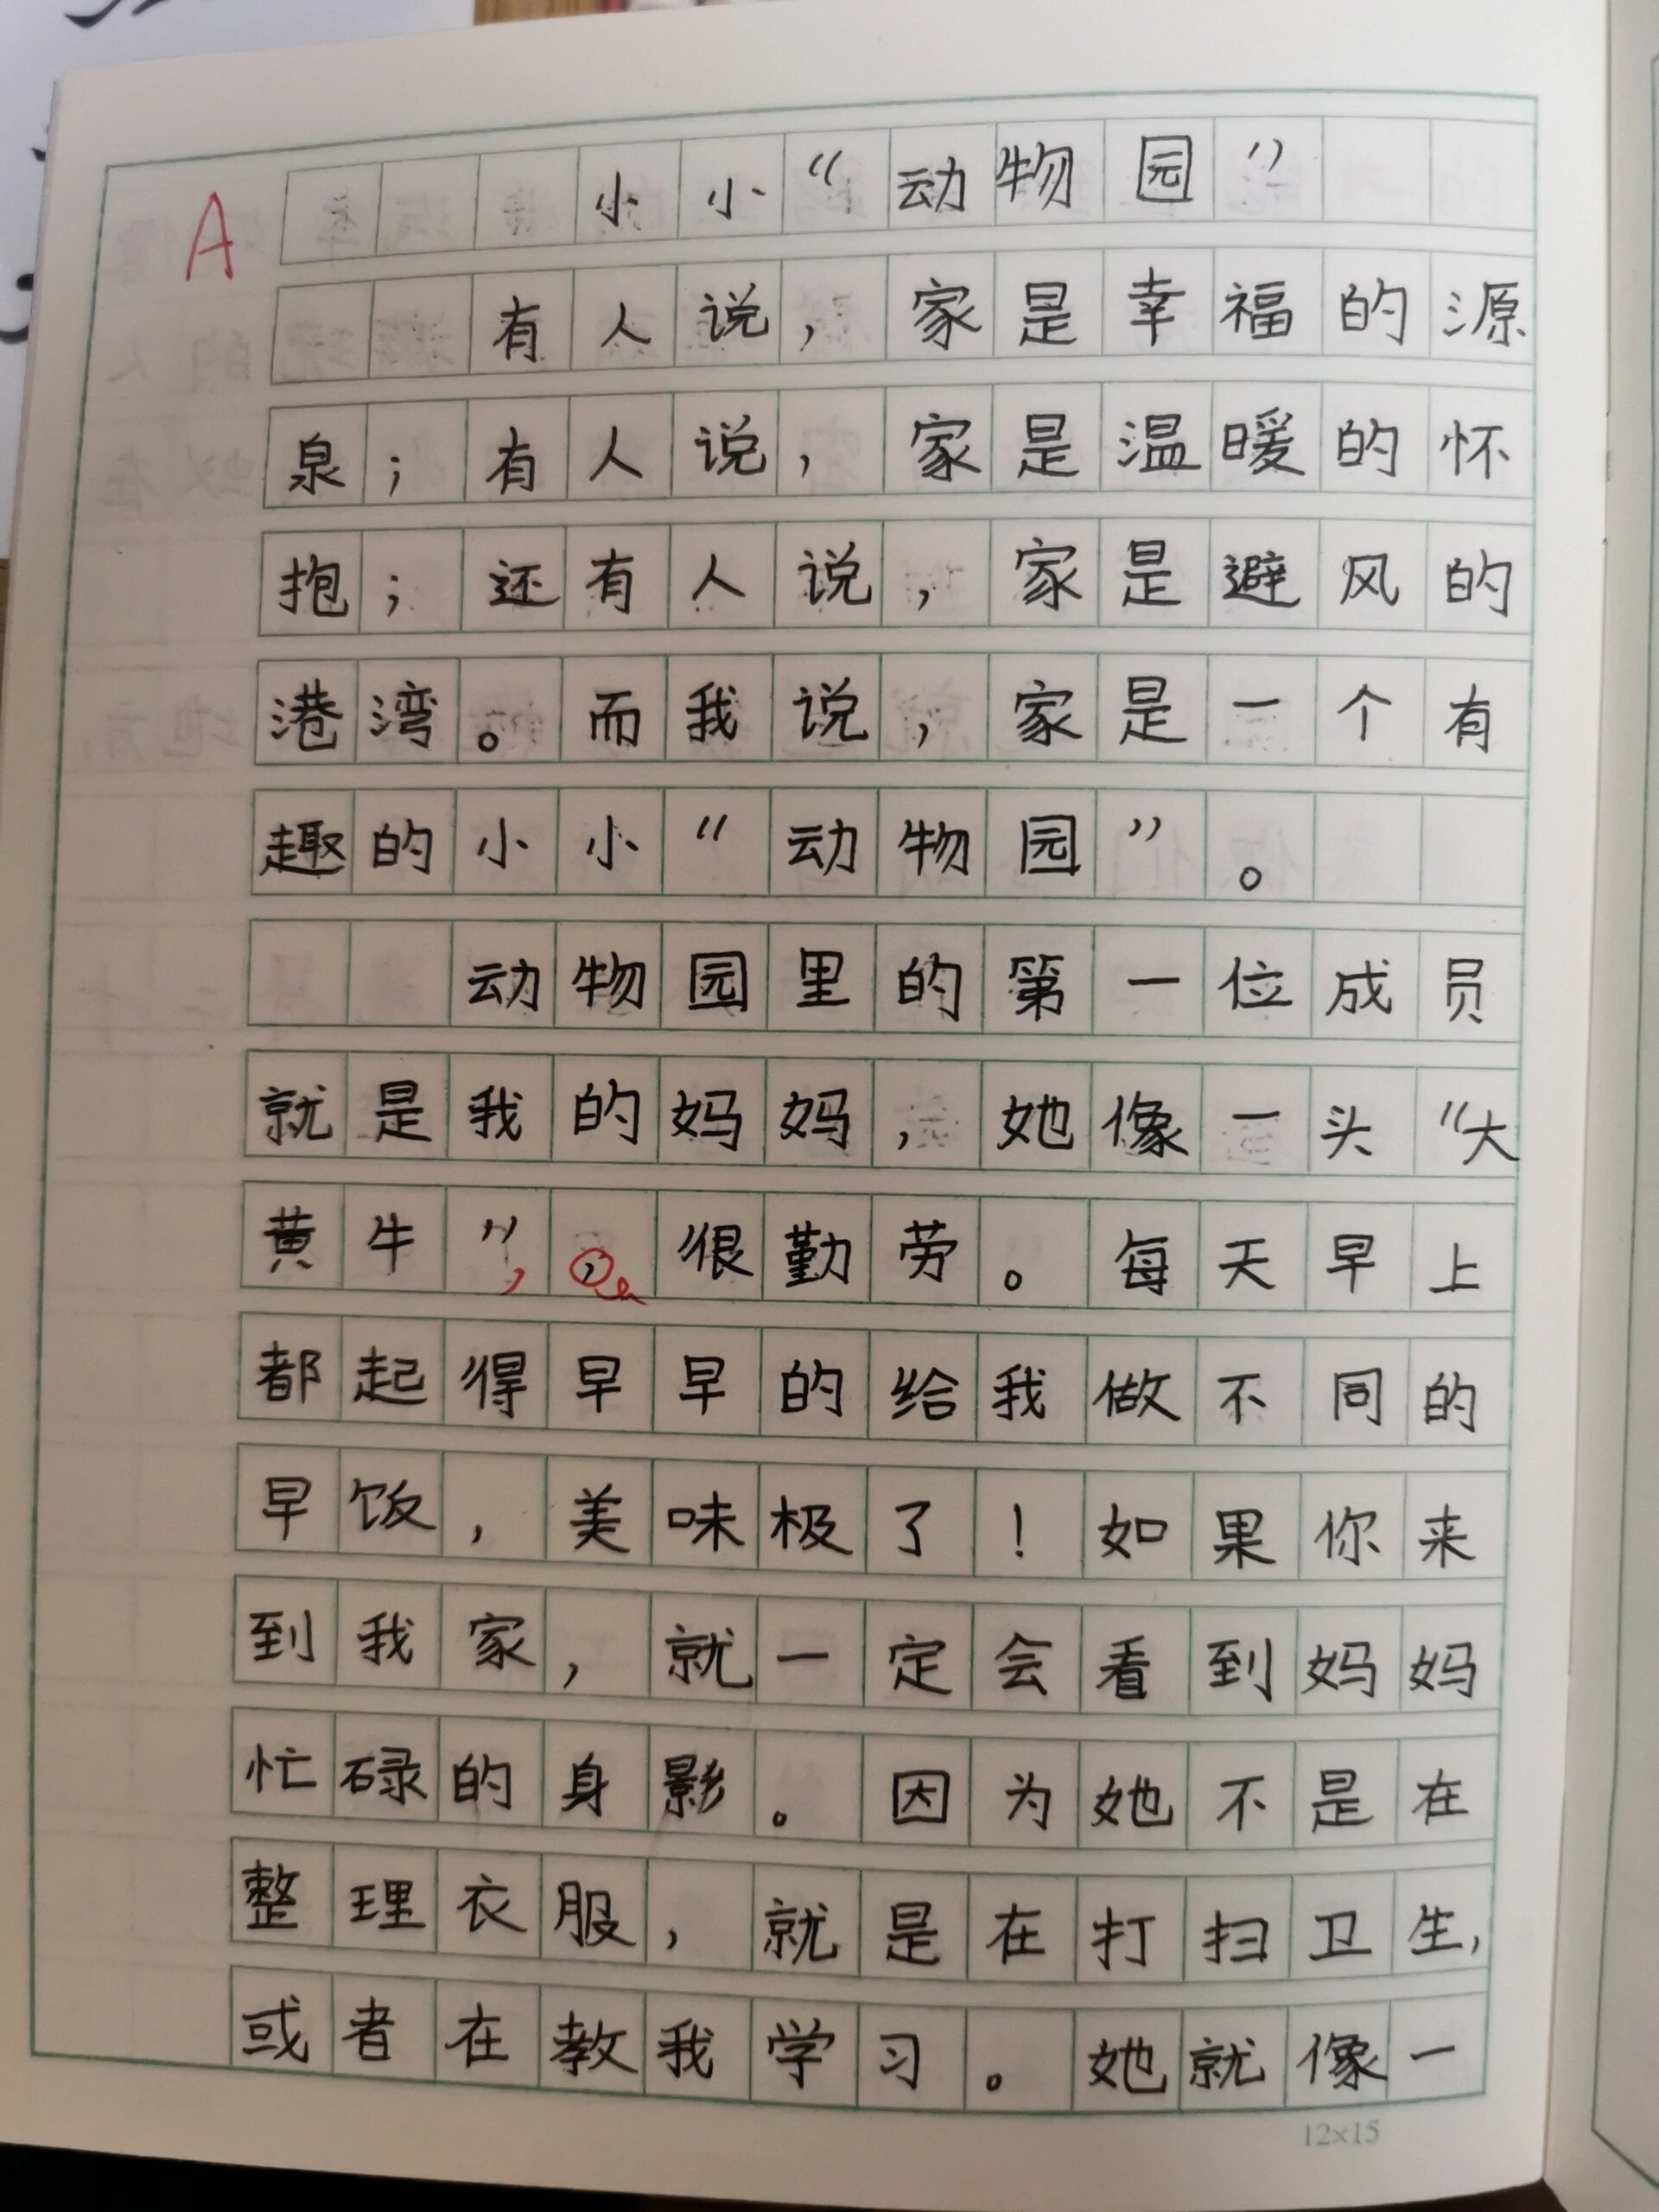 A
小小“动物园”
有人说，家是幸福的源
泉；有人说，家是温暖的怀
抱；还有人说，家是避风的
港湾。而我说，家是一个有
趣的小小“动物园”。
动物园里的第一位成员
就是我的妈妈，她像一头“大
黄牛”，，很勤劳。每天早上
都起得早早的给我做不同的
早饭，美味极了！如果你来
到我家，就一定会看到妈妈
忙碌的身影。因为她不是在
整理衣服，就是在打扫卫生，
或者在教我学习。她就像一
12×15